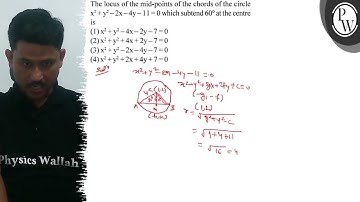 The locus of the mid-points of the chords of the circle
x² + y² - 2x - 4y - 11 = 0 which subtend 60° at the centre
is
(1) x² + y² - 4x - 2y - 7 = 0
(2) x² + y² + 4x + 2y - 7 = 0
(3) x² + y² - 2x - 4y - 7 = 0
(4) x² + y² + 2x + 4y + 7 = 0
x² + y² - 2x - 4y - 11 = 0
x² + y² + 2gx + 2fy + c = 0
(-g, -f)
(1, 2)
r = √g² + f² - c
= √1 + 4 + 11
= √16 = 4
(1, 2)
A
B
(h, k)
PW
Physics Wallah